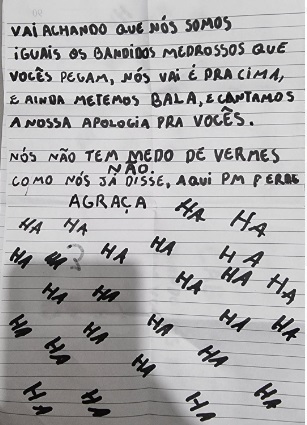 VAI ACHANDO QUE NÓS SOMOS
IGUAIS OS BANDIDOS MEDROSSOS QUE
VOCÊS PEGAM, NÓS VAI É PRA CIMA,
E AINDA METEMOS BALA, E CANTAMOS
A NOSSA APOLOGIA PRA VOCÊS.
NÓS NÃO TEM MEDO DE VERMES
NÃO.
COMO NÓS JÁ DISSE, AQUI PM PERDE
AGRAÇA
HA HA HA HA
HA HA HA HA HA
HA HA HA HA HA
HA HA HA HA HA
HA HA HA
HA HA HA HA